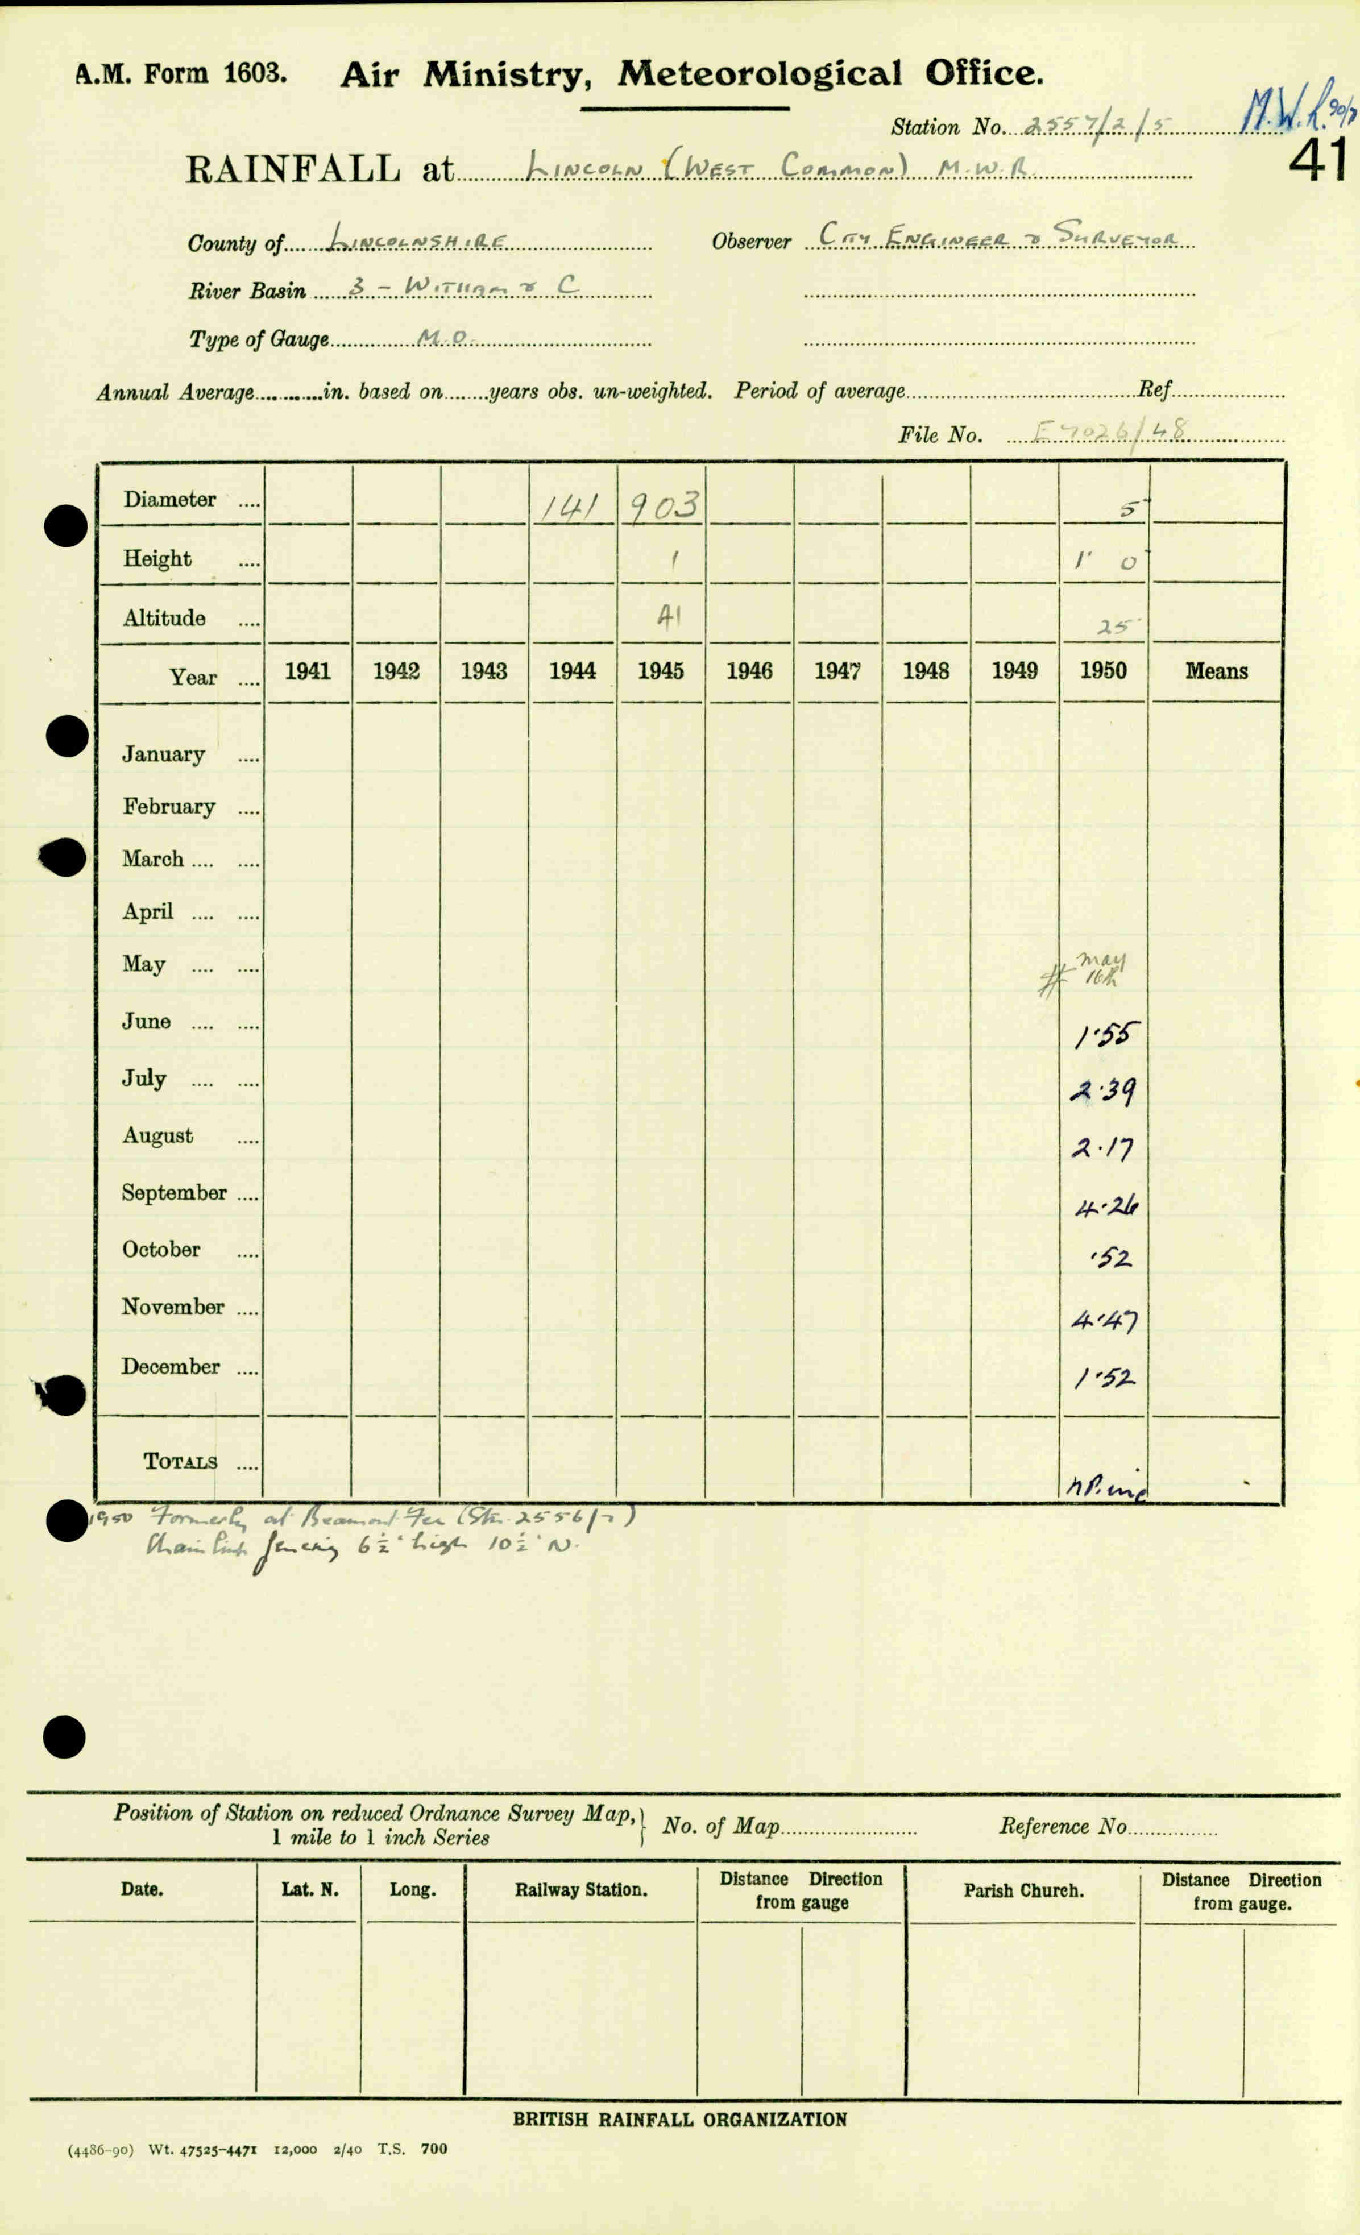 A.M. Form 1603. Air Ministry, Meteorological Office.
Station No. 2557/2/5 M.W.R.
41
RAINFALL at LINCOLN (WEST COMMON) M.W.R
County of LINCOLNSHIRE Observer CITY ENGINEER & SURVEYOR
River Basin 3 - WITHAM & C
Type of Gauge M.O.
Annual Average............in. based on........years obs. un-weighted. Period of average............Ref............
File No. E7026/48
Diameter .... 141 903 5
Height .... 1 1' 0
Altitude .... A1 25
Year .... 1941 1942 1943 1944 1945 1946 1947 1948 1949 1950 Means
January ....
February ....
March .... ....
April .... ....
May .... .... # may 16th
June .... .... 1·55
July .... .... 2·39
August .... 2·17
September .... 4·26
October .... ·52
November .... 4·47
December .... 1·52
TOTALS ....
1950 Formerly at Beaumont Fee (Stn. 2556/ )
Chain link fencing 6½' high 10½' N.
Position of Station on reduced Ordnance Survey Map, 1 mile to 1 inch Series } No. of Map............ Reference No............
Date. Lat. N. Long. Railway Station. Distance Direction from gauge Parish Church. Distance Direction from gauge.
BRITISH RAINFALL ORGANIZATION
(4486-90) Wt. 47525-4471 12,000 2/40 T.S. 700